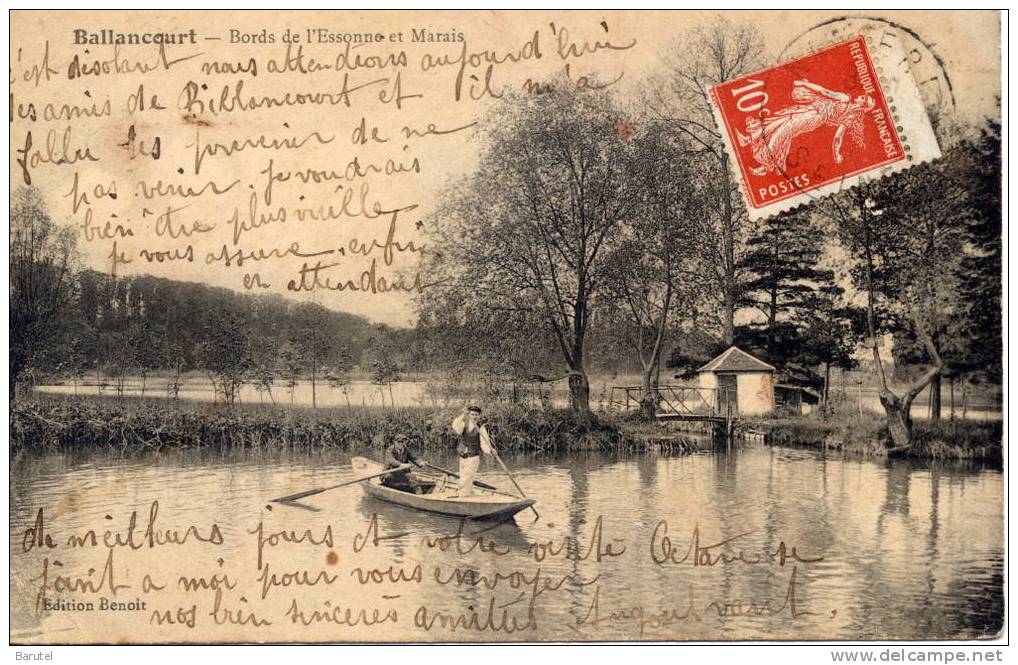 Ballancourt — Bords de l'Essonne et Marais
c'est désolant nous attendions aujourd'hui
les amis de Ballancourt et il m'a
fallu les prévenir de ne
pas venir. je voudrais
bien être plus vieille
je vous assure, enfin
en attendant
de meilleurs jours et votre visite Octave se
joint a moi pour vous envoyer
nos bien sincères amitiés
Edition Benoit
REPUBLIQUE FRANÇAISE
10c
POSTES
Barutel
www.delcampe.net